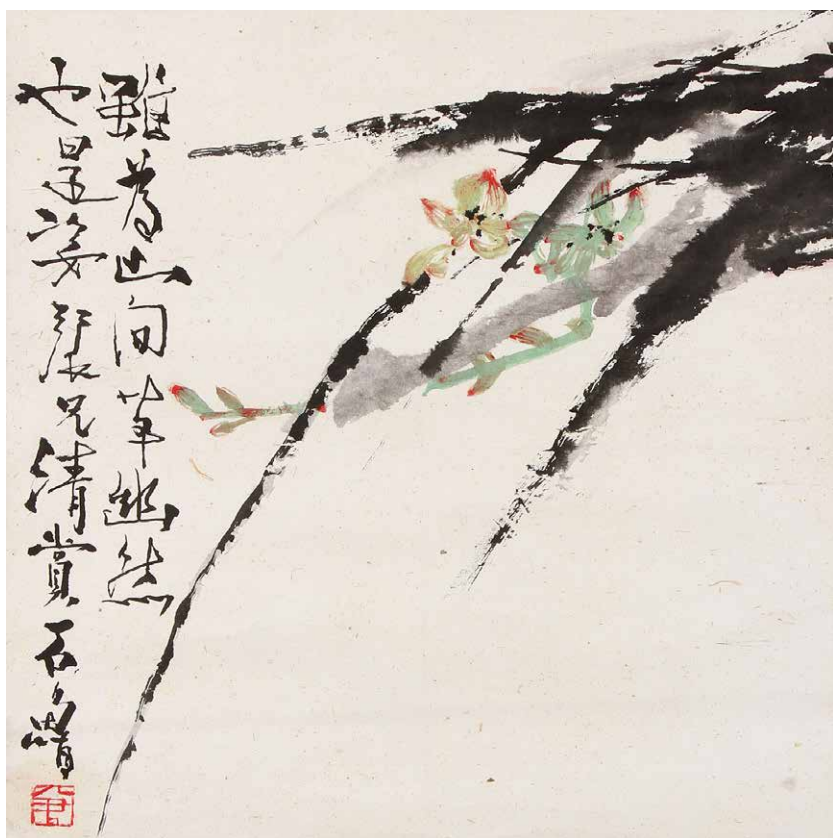 雖為山间草幽然
也是姿 兄清賞 石魯